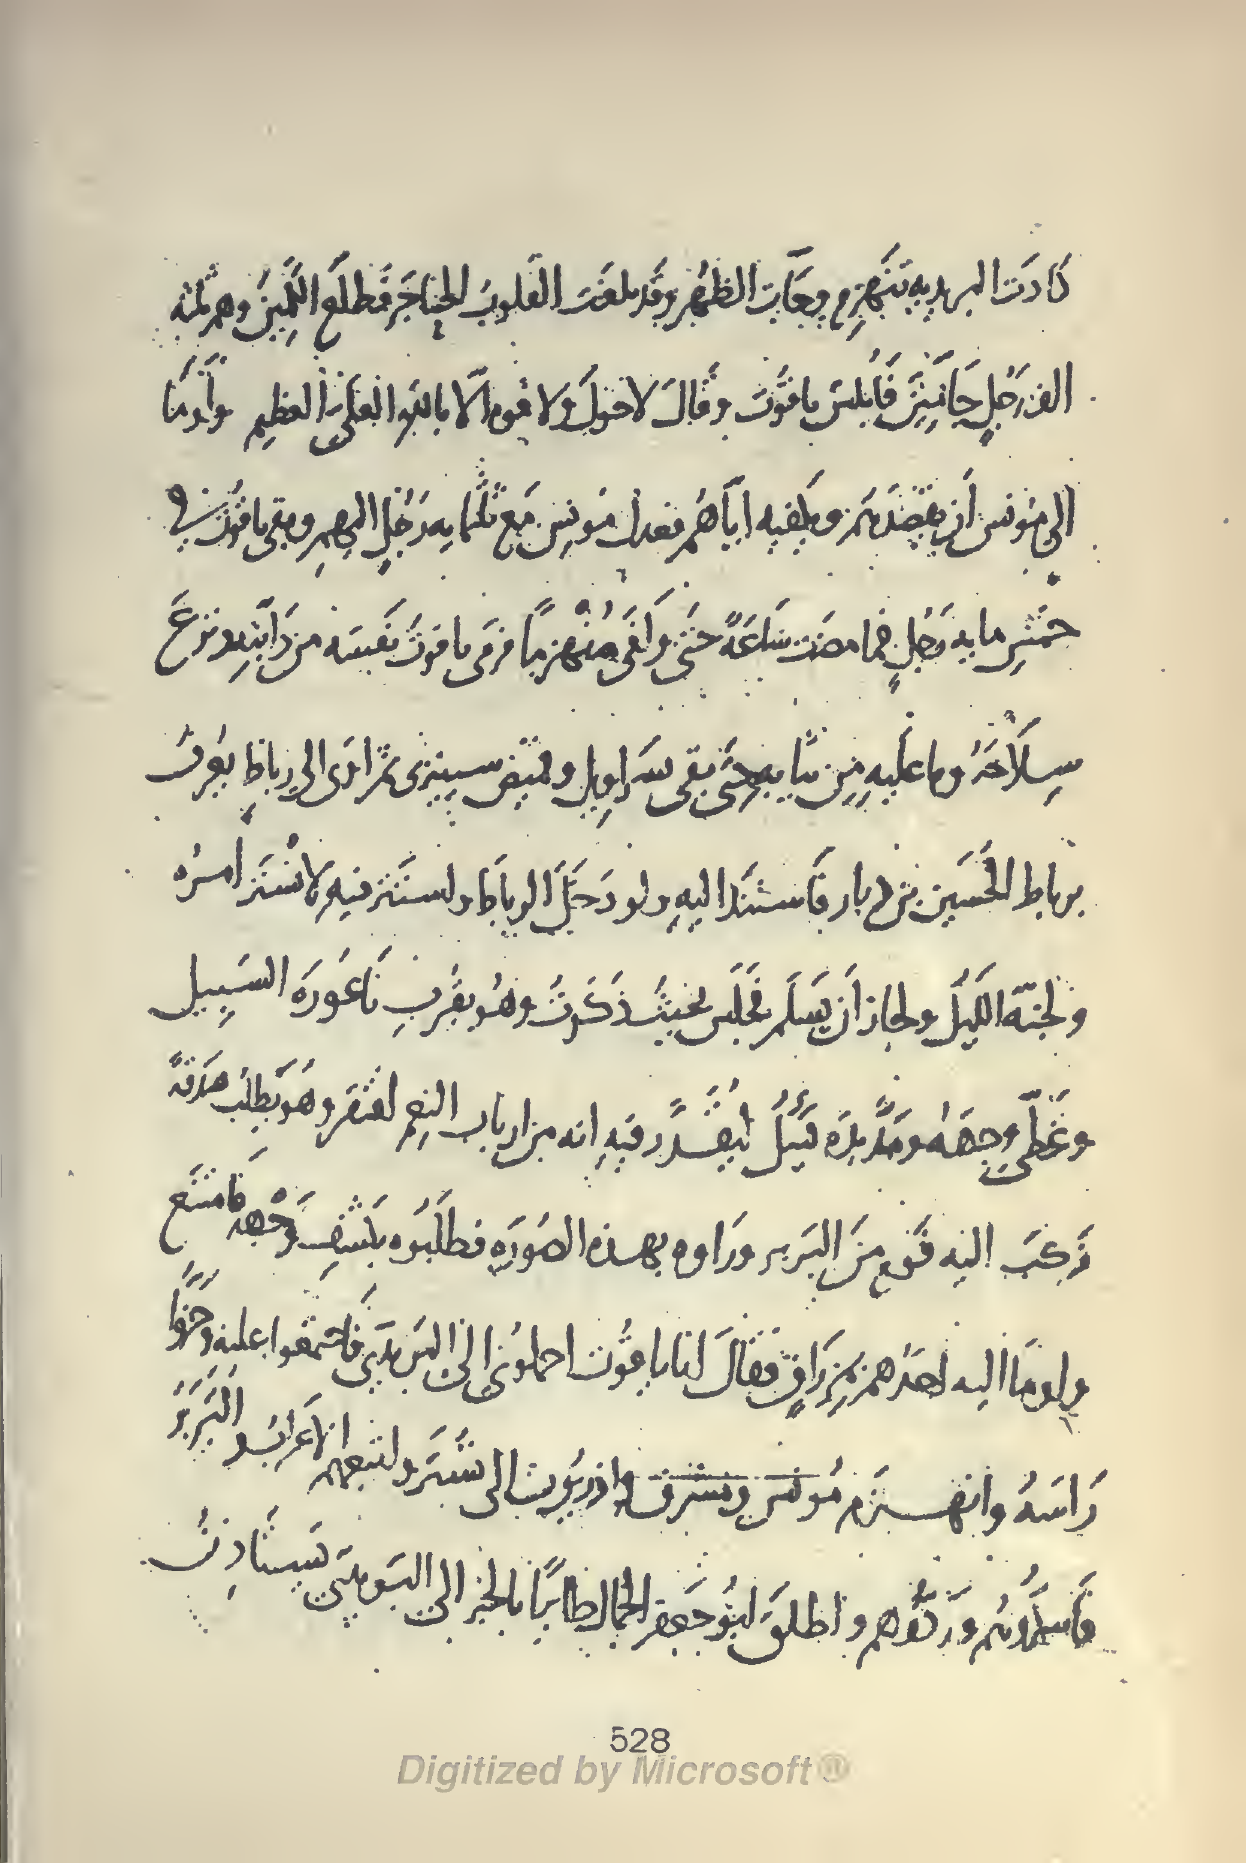 كادَت البريديه تنهزم وجات الظهر وقد بلغت القلوبُ الحناجر فطلع الكمين وهم ثلثه
الف رَجُلٍ جَامّين فَأَبلسَ ياقوت وقالَ لا حَولَ ولا قوه الّا بالله العلي العظيم واومَا
الى مُونس أن يقصدَهم ويكفيه ايّاهُم فعدل مونس مَع ثلثمايه رَجُلٍ اليهم وبقي ياقوت في
خمسِ مايه رَجُلٍ فما مضت سَاعَةً حَتى وَافَى مُنْهزمًا فرمَى ياقوتُ نفسَه من دَابّتهِ ونزعَ
سِلَاحَهُ وما عَليهِ مِن ثيابهِ حتى بقى بسَراويل وقميص سينيزى ثم اوَى الى رباطٍ يعرف
برباط الحُسَين بن دبار فاستندَ اليهِ ولو دَخَلَ الرباطَ واستتر فيهِ لاستَتر امرُه
ولجنّهُ الليلُ ولجاز أن يسلم فجلس بحيثُ ذكرتُ وهُو بقُربِ ناعورَه السَبِيل
وغَطّى وجهَهُ ومَدَّ يدَه كمن يسئلُ ليُقدَّر فيهِ انه من ارباب النِعم افتقر وهُو يَطلب صَدقةً
فركبَ اليه قَوم مِنَ البَربر ورَاوه بهذه الصُورَهِ فطلَبُوه بكشفِ وَجْهه فامتنع
واومَا اليه احَدُهم بمِزراقٍ فقالَ انا ياقُوت احملونى الى البَريديّ فاجتمعُوا عليهِ وحَزّوا
رَاسَهُ وانهزم مُونس ومشرق واذريُون الى تُستَر واتبعهم الاعرابُ والبَربر
فاسَرُوهُم وردّوهم واطلقَ ابُو جَعفر الجمّال طايرًا بالخبر الى البَريديّ يستاذنُ
528
Digitized by Microsoft®